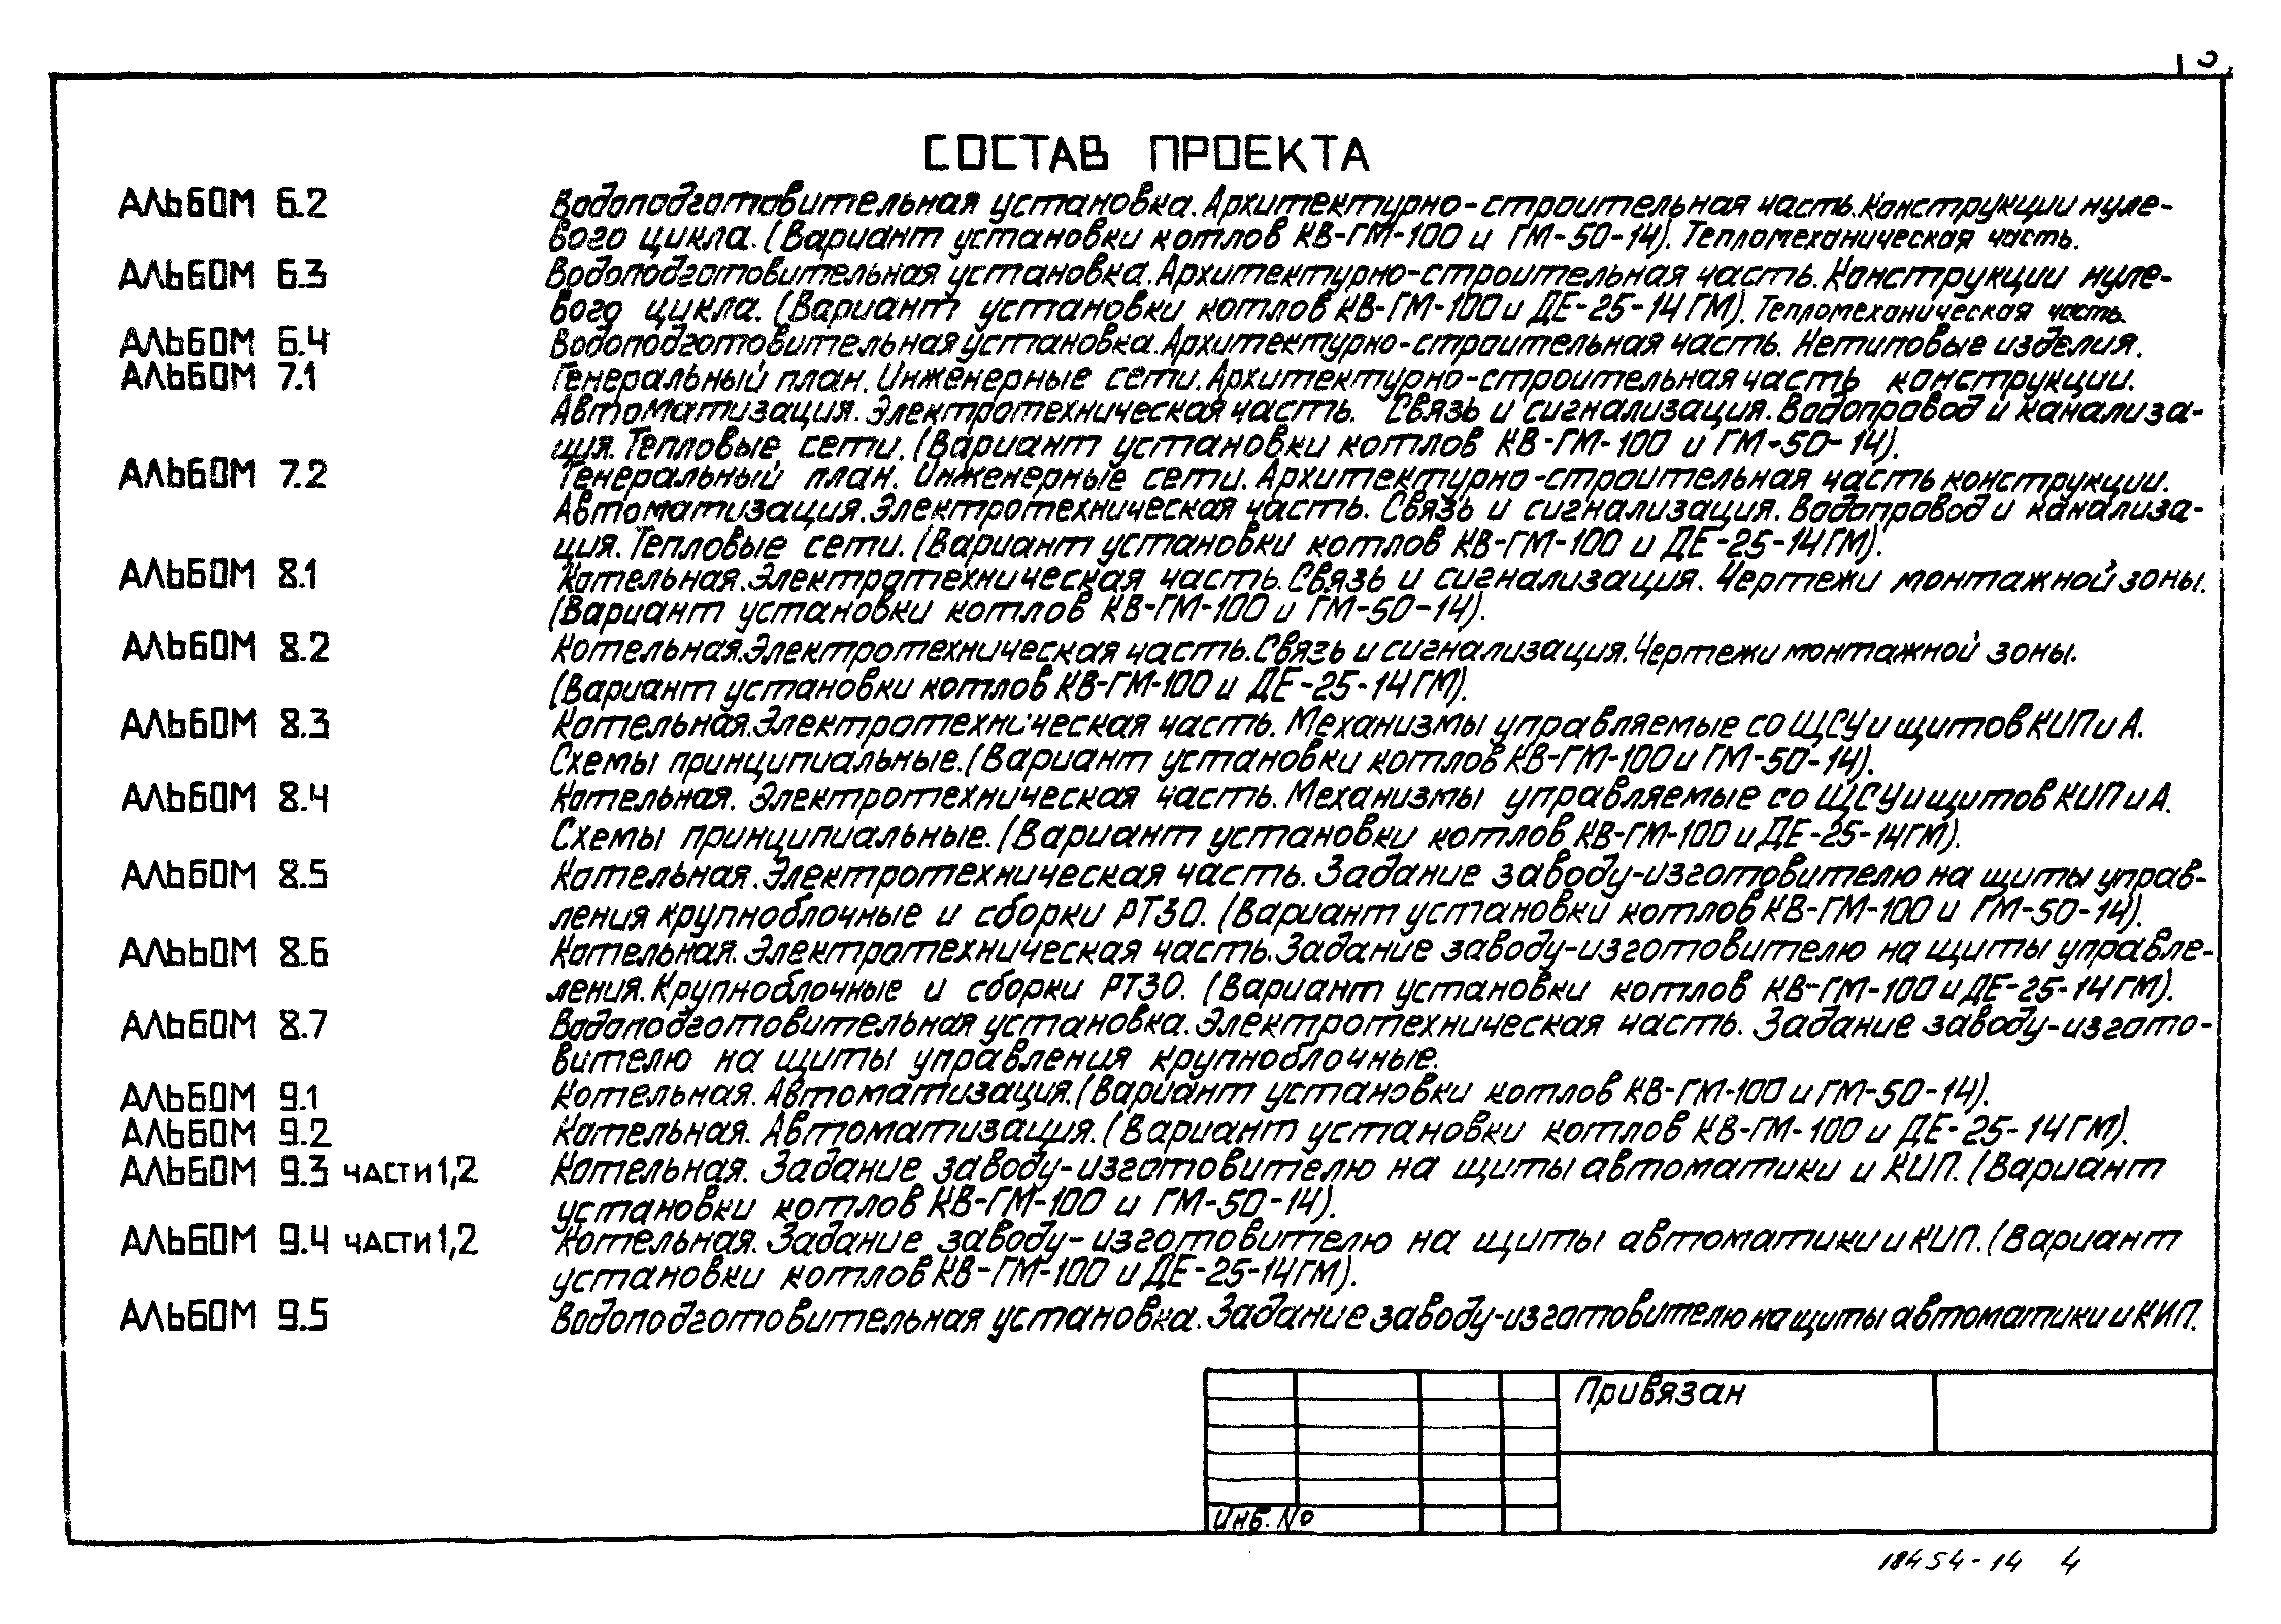 3
СОСТАВ ПРОЕКТА
АЛЬБОМ 6.2 Водоподготовительная установка. Архитектурно-строительная часть. Конструкции нуле-
вого цикла. (Вариант установки котлов КВ-ГМ-100 и ГМ-50-14). Тепломеханическая часть.
АЛЬБОМ 6.3 Водоподготовительная установка. Архитектурно-строительная часть. Конструкции нуле-
вого цикла. (Вариант установки котлов КВ-ГМ-100 и ДЕ-25-14ГМ). Тепломеханическая часть.
АЛЬБОМ 6.4 Водоподготовительная установка. Архитектурно-строительная часть. Нетиповые изделия.
АЛЬБОМ 7.1 Генеральный план. Инженерные сети. Архитектурно-строительная часть конструкции.
Автоматизация. Электротехническая часть. Связь и сигнализация. Водопровод и канализа-
ция. Тепловые сети. (Вариант установки котлов КВ-ГМ-100 и ГМ-50-14).
АЛЬБОМ 7.2 Генеральный план. Инженерные сети. Архитектурно-строительная часть конструкции.
Автоматизация. Электротехническая часть. Связь и сигнализация. Водопровод и канализа-
ция. Тепловые сети. (Вариант установки котлов КВ-ГМ-100 и ДЕ-25-14ГМ).
АЛЬБОМ 8.1 Котельная. Электротехническая часть. Связь и сигнализация. Чертежи монтажной зоны.
(Вариант установки котлов КВ-ГМ-100 и ГМ-50-14).
АЛЬБОМ 8.2 Котельная. Электротехническая часть. Связь и сигнализация. Чертежи монтажной зоны.
(Вариант установки котлов КВ-ГМ-100 и ДЕ-25-14ГМ).
АЛЬБОМ 8.3 Котельная. Электротехническая часть. Механизмы управляемые со ЩСУ и щитов КИП и А.
Схемы принципиальные. (Вариант установки котлов КВ-ГМ-100 и ГМ-50-14).
АЛЬБОМ 8.4 Котельная. Электротехническая часть. Механизмы управляемые со ЩСУ и щитов КИП и А.
Схемы принципиальные. (Вариант установки котлов КВ-ГМ-100 и ДЕ-25-14ГМ).
АЛЬБОМ 8.5 Котельная. Электротехническая часть. Задание заводу-изготовителю на щиты управ-
ления крупноблочные и сборки РТ30. (Вариант установки котлов КВ-ГМ-100 и ГМ-50-14).
АЛЬБОМ 8.6 Котельная. Электротехническая часть. Задание заводу-изготовителю на щиты управле-
ления. Крупноблочные и сборки РТ30. (Вариант установки котлов КВ-ГМ-100 и ДЕ-25-14ГМ).
АЛЬБОМ 8.7 Водоподготовительная установка. Электротехническая часть. Задание заводу-изгото-
вителю на щиты управления крупноблочные.
АЛЬБОМ 9.1 Котельная. Автоматизация. (Вариант установки котлов КВ-ГМ-100 и ГМ-50-14).
АЛЬБОМ 9.2 Котельная. Автоматизация. (Вариант установки котлов КВ-ГМ-100 и ДЕ-25-14ГМ).
АЛЬБОМ 9.3 ЧАСТИ 1,2 Котельная. Задание заводу-изготовителю на щиты автоматики и КИП. (Вариант
установки котлов КВ-ГМ-100 и ГМ-50-14).
АЛЬБОМ 9.4 ЧАСТИ 1,2 Котельная. Задание заводу-изготовителю на щиты автоматики и КИП. (Вариант
установки котлов КВ-ГМ-100 и ДЕ-25-14ГМ).
АЛЬБОМ 9.5 Водоподготовительная установка. Задание заводу-изготовителю на щиты автоматики и КИП.
Привязан
Инв. №
18454-14 4